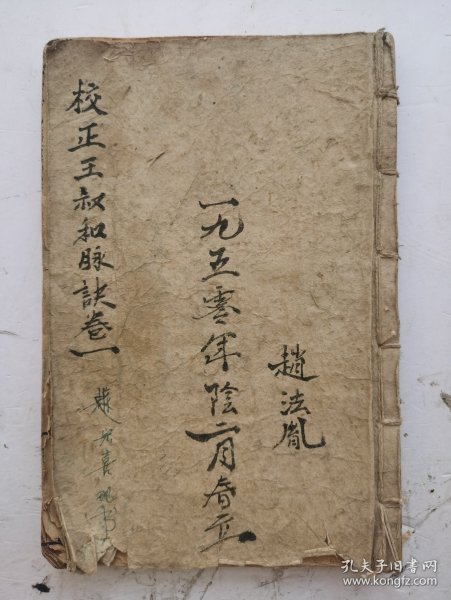 趙法胤
一九五零年陰二月春立
校正王叔和脉訣卷一
孔夫子旧书网
www.kongfz.com